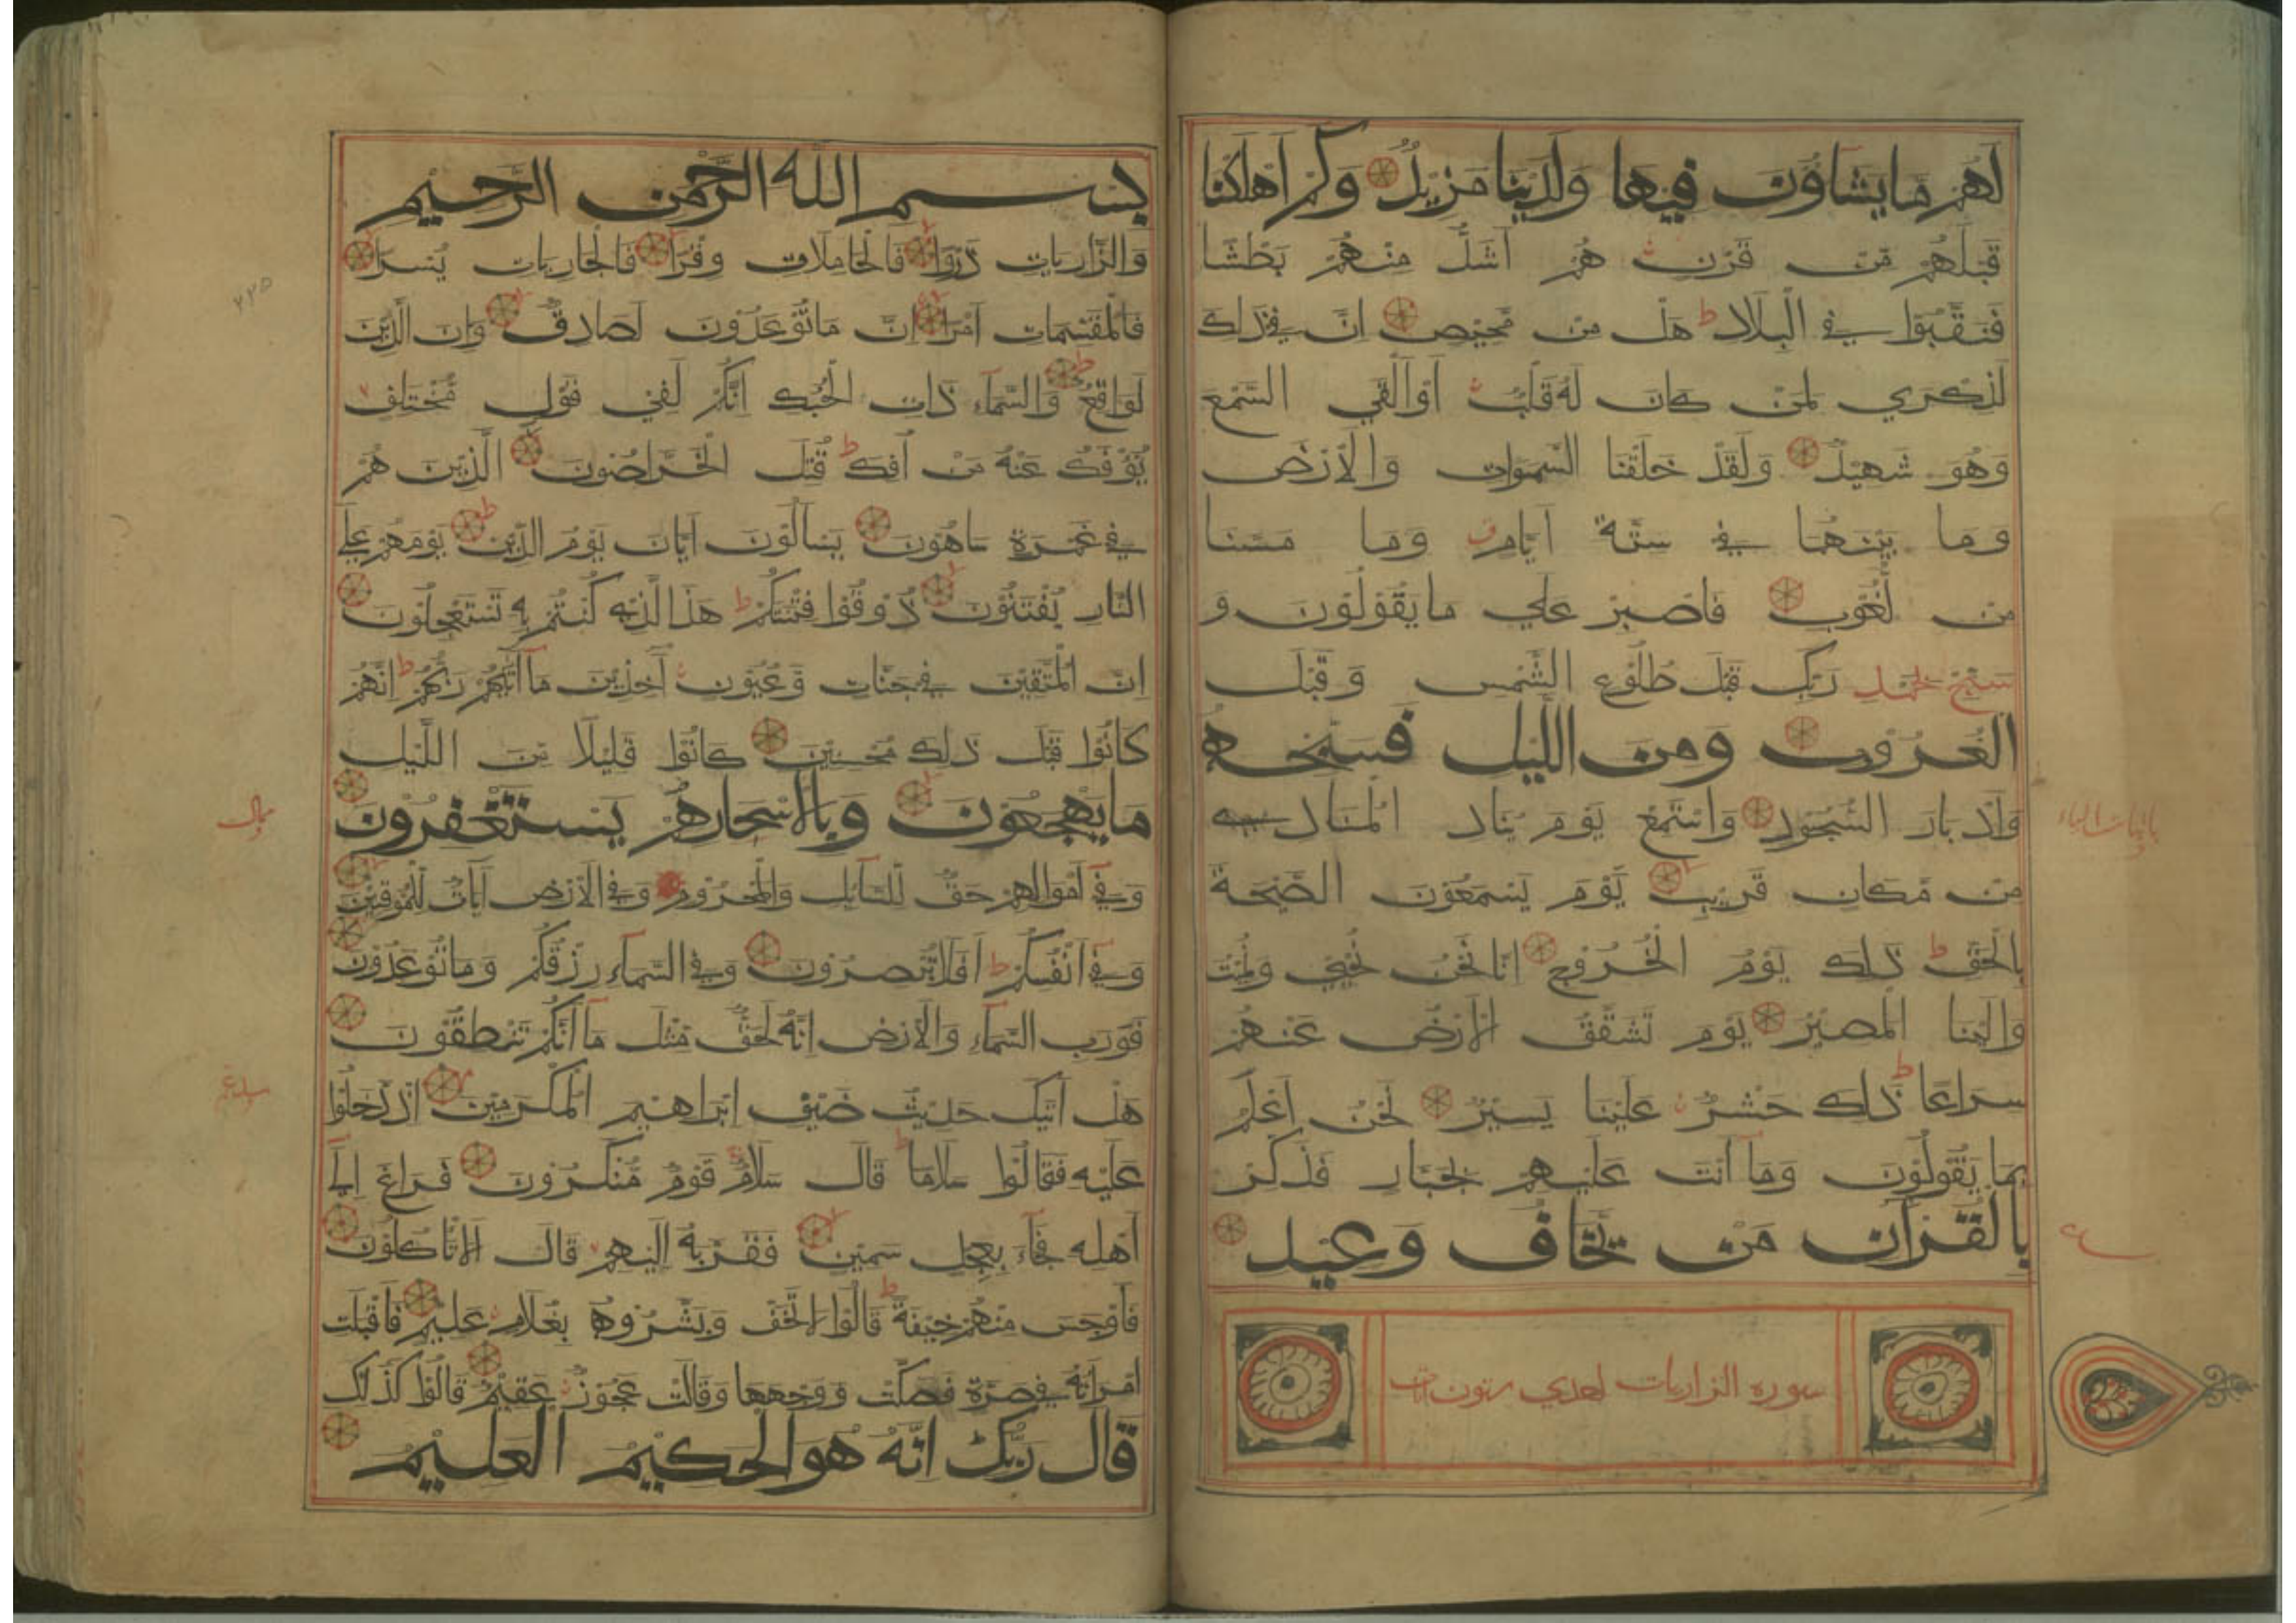 لَهُمْ مَا يَشَاؤُنَ فِيهَا وَلَدَيْنَا مَزِيدٌ وَكَمْ اَهْلَكْنَا
قَبْلَهُمْ مِنْ قَرْنٍ هُمْ اَشَدُّ مِنْهُمْ بَطْشًا
فَنَقَّبُوْا فِي الْبِلَادِ ط هَلْ مِنْ مَحِيْصٍ اِنَّ فِي ذَلِكَ
لَذِكْرَي لِمَنْ كَانَ لَهُ قَلْبٌ اَوْ اَلْقَي السَّمْعَ
وَهُوَ شَهِيْدٌ وَلَقَدْ خَلَقْنَا السَّمَوَاتِ وَالْاَرْضَ
وَمَا بَيْنَهُمَا فِي سِتَّةِ اَيَّامٍ ق وَمَا مَسَّنَا
مِنْ لُغُوْبٍ فَاصْبِرْ عَلَي مَا يَقُوْلُوْنَ وَ
سَبِّحْ بِحَمْدِ رَبِّكَ قَبْلَ طُلُوْعِ الشَّمْسِ وَقَبْلَ
الْغُرُوْبِ وَمِنَ اللَّيْلِ فَسَبِّحْهُ
وَاَدْبَارَ السُّجُوْدِ وَاسْتَمِعْ يَوْمَ يُنَادِ الْمُنَادِي
مِنْ مَّكَانٍ قَرِيْبٍ يَوْمَ يَسْمَعُوْنَ الصَّيْحَةَ
بِالْحَقِّ ط ذَلِكَ يَوْمُ الْخُرُوْجِ اِنَّا نَحْنُ نُحْيِي وَنُمِيْتُ
وَاِلَيْنَا الْمَصِيْرُ يَوْمَ تَشَقَّقُ الْاَرْضُ عَنْهُمْ
سِرَاعًا ط ذَلِكَ حَشْرٌ عَلَيْنَا يَسِيْرٌ نَحْنُ اَعْلَمُ
بِمَا يَقُوْلُوْنَ وَمَا اَنْتَ عَلَيْهِمْ بِجَبَّارٍ فَذَكِّرْ
بِالْقُرْاٰنِ مَنْ يَخَافُ وَعِيْدِ
سوره الزاريات احدي ستون ايات
بِسْمِ اللّٰهِ الرَّحْمٰنِ الرَّحِيْمِ
وَالذَّارِيَاتِ ذَرْوًا فَالْحَامِلَاتِ وِقْرًا فَالْجَارِيَاتِ يُسْرًا
فَالْمُقَسِّمَاتِ اَمْرًا اِنَّ مَا تُوْعَدُوْنَ لَصَادِقٌ وَاِنَّ الدِّيْنَ
لَوَاقِعٌ وَالسَّمَآءِ ذَاتِ الْحُبُكِ اِنَّكُمْ لَفِيْ قَوْلٍ مُّخْتَلِفٍ
يُؤْفَكُ عَنْهُ مَنْ اُفِكَ ط قُتِلَ الْخَرَّاصُوْنَ الَّذِيْنَ هُمْ
فِي غَمْرَةٍ سَاهُوْنَ يَسْاَلُوْنَ اَيَّانَ يَوْمُ الدِّيْنِ يَوْمَ هُمْ عَلَي
النَّارِ يُفْتَنُوْنَ ذُوْقُوْا فِتْنَتَكُمْ ط هَذَا الَّذِيْ كُنْتُمْ بِهِ تَسْتَعْجِلُوْنَ
اِنَّ الْمُتَّقِيْنَ فِي جَنَّاتٍ وَّعُيُوْنٍ اٰخِذِيْنَ مَا اٰتٰيهُمْ رَبُّهُمْ ط اِنَّهُمْ
كَانُوْا قَبْلَ ذَلِكَ مُحْسِنِيْنَ كَانُوْا قَلِيْلًا مِّنَ اللَّيْلِ
مَا يَهْجَعُوْنَ وَبِالْاَسْحَارِ هُمْ يَسْتَغْفِرُوْنَ
وَفِي اَمْوَالِهِمْ حَقٌّ لِّلسَّآئِلِ وَالْمَحْرُوْمِ وَفِي الْاَرْضِ اٰيَاتٌ لِّلْمُوْقِنِيْنَ
وَفِي اَنْفُسِكُمْ ط اَفَلَا تُبْصِرُوْنَ وَفِي السَّمَآءِ رِزْقُكُمْ وَمَا تُوْعَدُوْنَ
فَوَرَبِّ السَّمَآءِ وَالْاَرْضِ اِنَّهُ لَحَقٌّ مِّثْلَ مَا اَنَّكُمْ تَنْطِقُوْنَ
هَلْ اَتٰيكَ حَدِيْثُ ضَيْفِ اِبْرَاهِيْمَ الْمُكْرَمِيْنَ اِذْ دَخَلُوْا
عَلَيْهِ فَقَالُوْا سَلَامًا ط قَالَ سَلَامٌ قَوْمٌ مُّنْكَرُوْنَ فَرَاغَ اِلَي
اَهْلِهِ فَجَآءَ بِعِجْلٍ سَمِيْنٍ فَقَرَّبَهُ اِلَيْهِمْ قَالَ اَلَا تَاْكُلُوْنَ
فَاَوْجَسَ مِنْهُمْ خِيْفَةً ط قَالُوْا لَا تَخَفْ وَبَشَّرُوْهُ بِغُلَامٍ عَلِيْمٍ فَاَقْبَلَتِ
امْرَاَتُهُ فِي صَرَّةٍ فَصَكَّتْ وَوَجْهَهَا وَقَالَتْ عَجُوْزٌ عَقِيْمٌ قَالُوْا كَذٰلِكِ
قَالَ رَبُّكِ اِنَّهُ هُوَ الْحَكِيْمُ الْعَلِيْمُ
٢٢٥